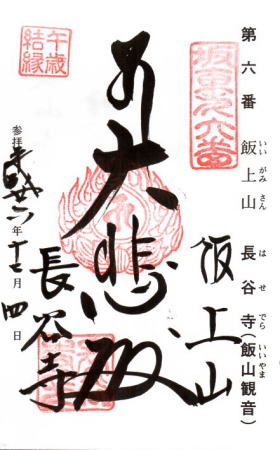 第六番 飯上山 長谷寺(飯山観音)
いいがみさん はせでら いいやま
坂東第六番
飯上山
大悲殿
長谷寺
午歳
結縁
参拝平成廿六年十二月四日